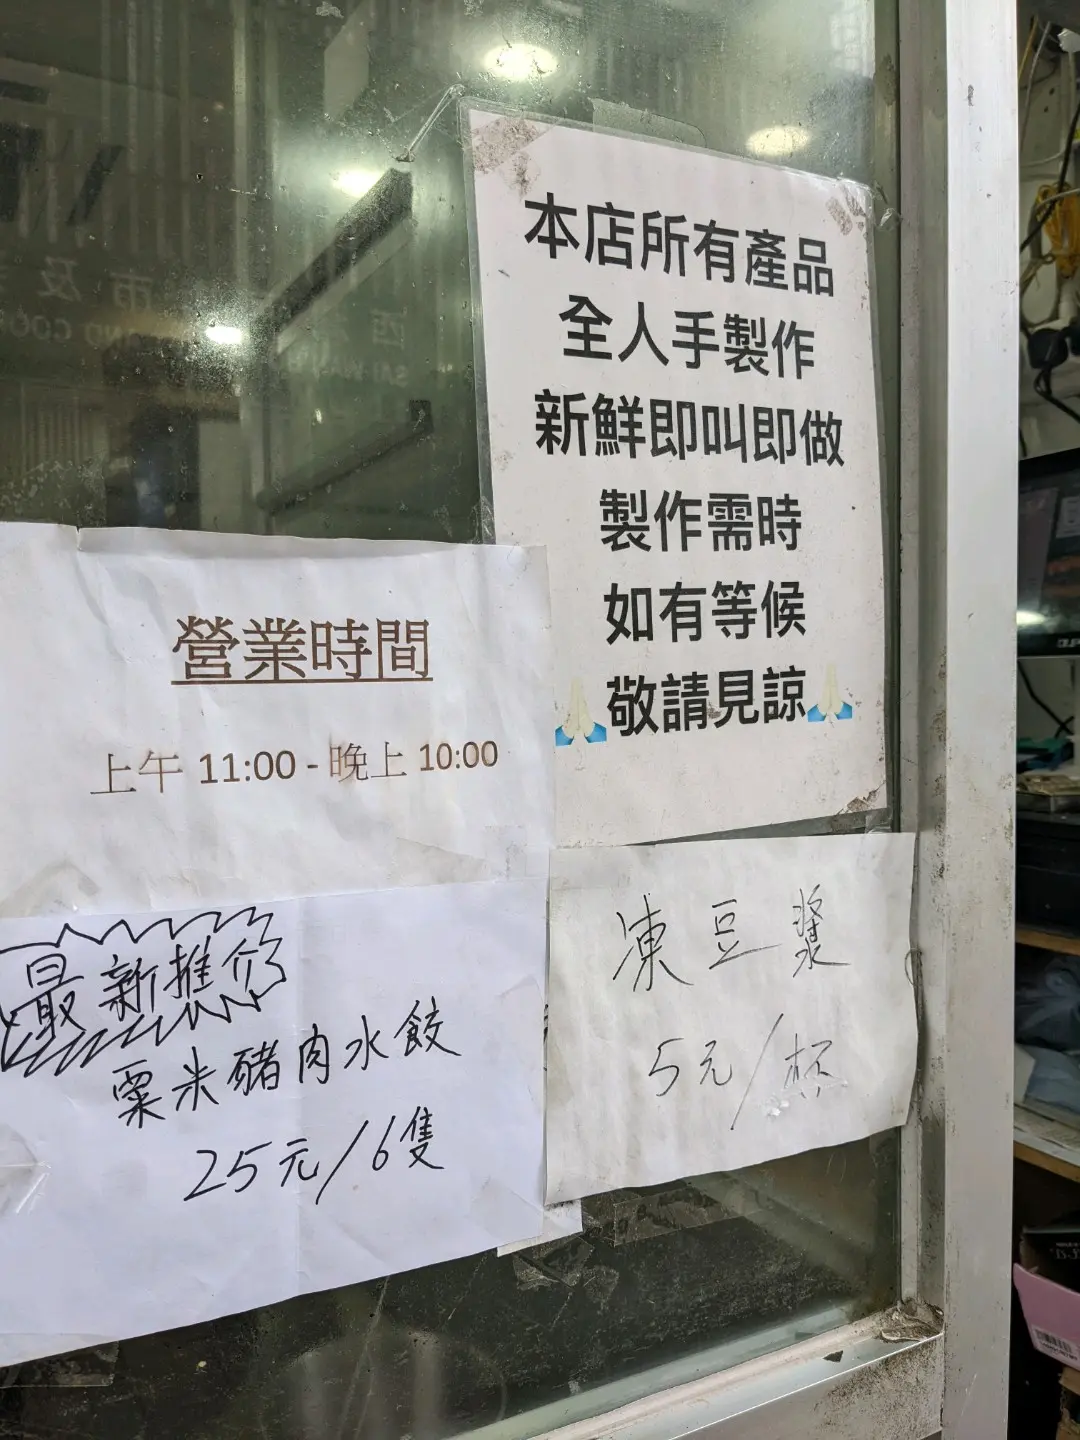 本店所有產品
全人手製作
新鮮即叫即做
製作需時
如有等候
🙏敬請見諒🙏
營業時間
上午 11:00 - 晚上 10:00
最新推介
粟米豬肉水餃
25元/6隻
凍豆漿
5元/杯